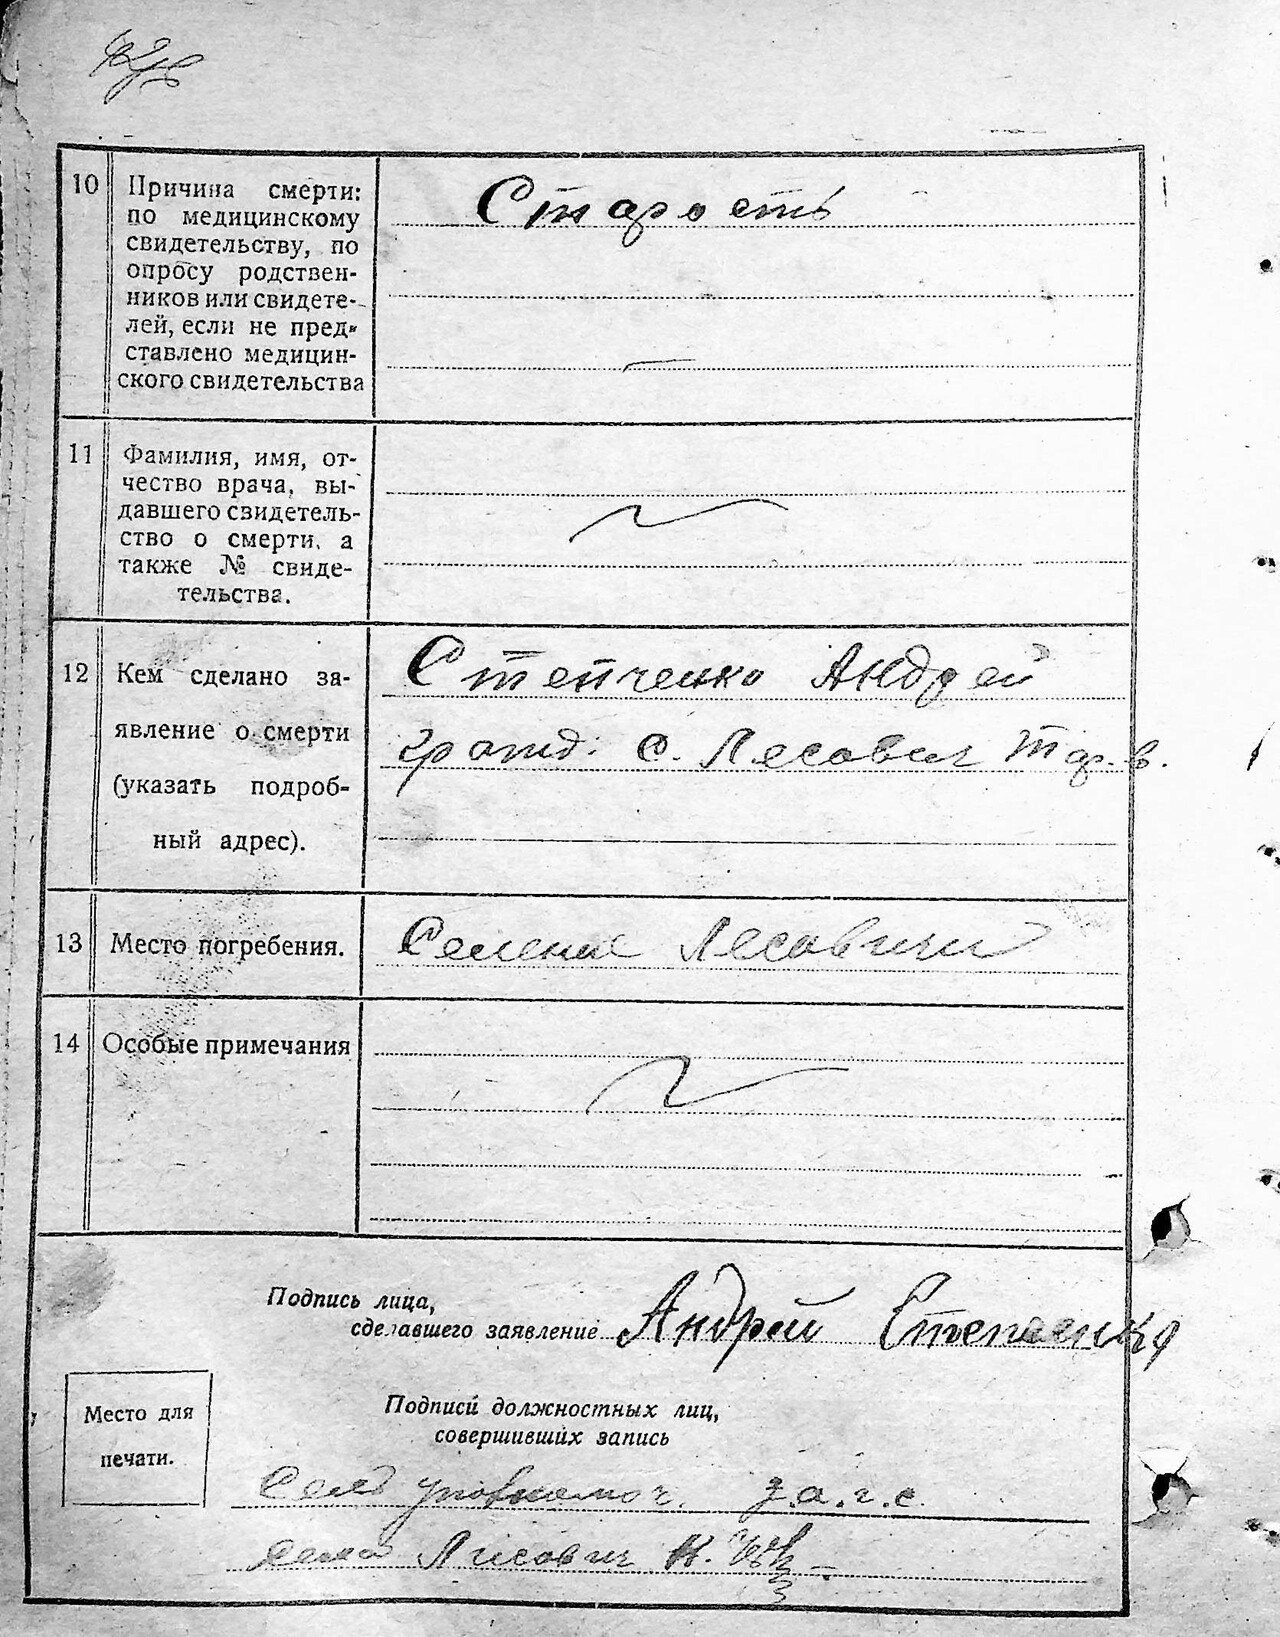 10
Причина смерти:
по медицинскому
свидетельству, по
опросу родствен-
ников или свидете-
лей, если не пред-
ставлено медицин-
ского свидетельства
Старость
11
Фамилия, имя, от-
чество врача, вы-
давшего свидетель-
ство о смерти, а
также № свиде-
тельства.
12
Кем сделано за-
явление о смерти
(указать подроб-
ный адрес).
Степченко Андрей
гражд. с. Лесович Тар. в.
13
Место погребения.
Селение Лесовичи
14
Особые примечания
Подпись лица,
сделавшего заявление Андрей
Место для
печати.
Подписи должностных лиц,
совершивших запись
уповномоч. з.а.г.с.
Лисович Н.